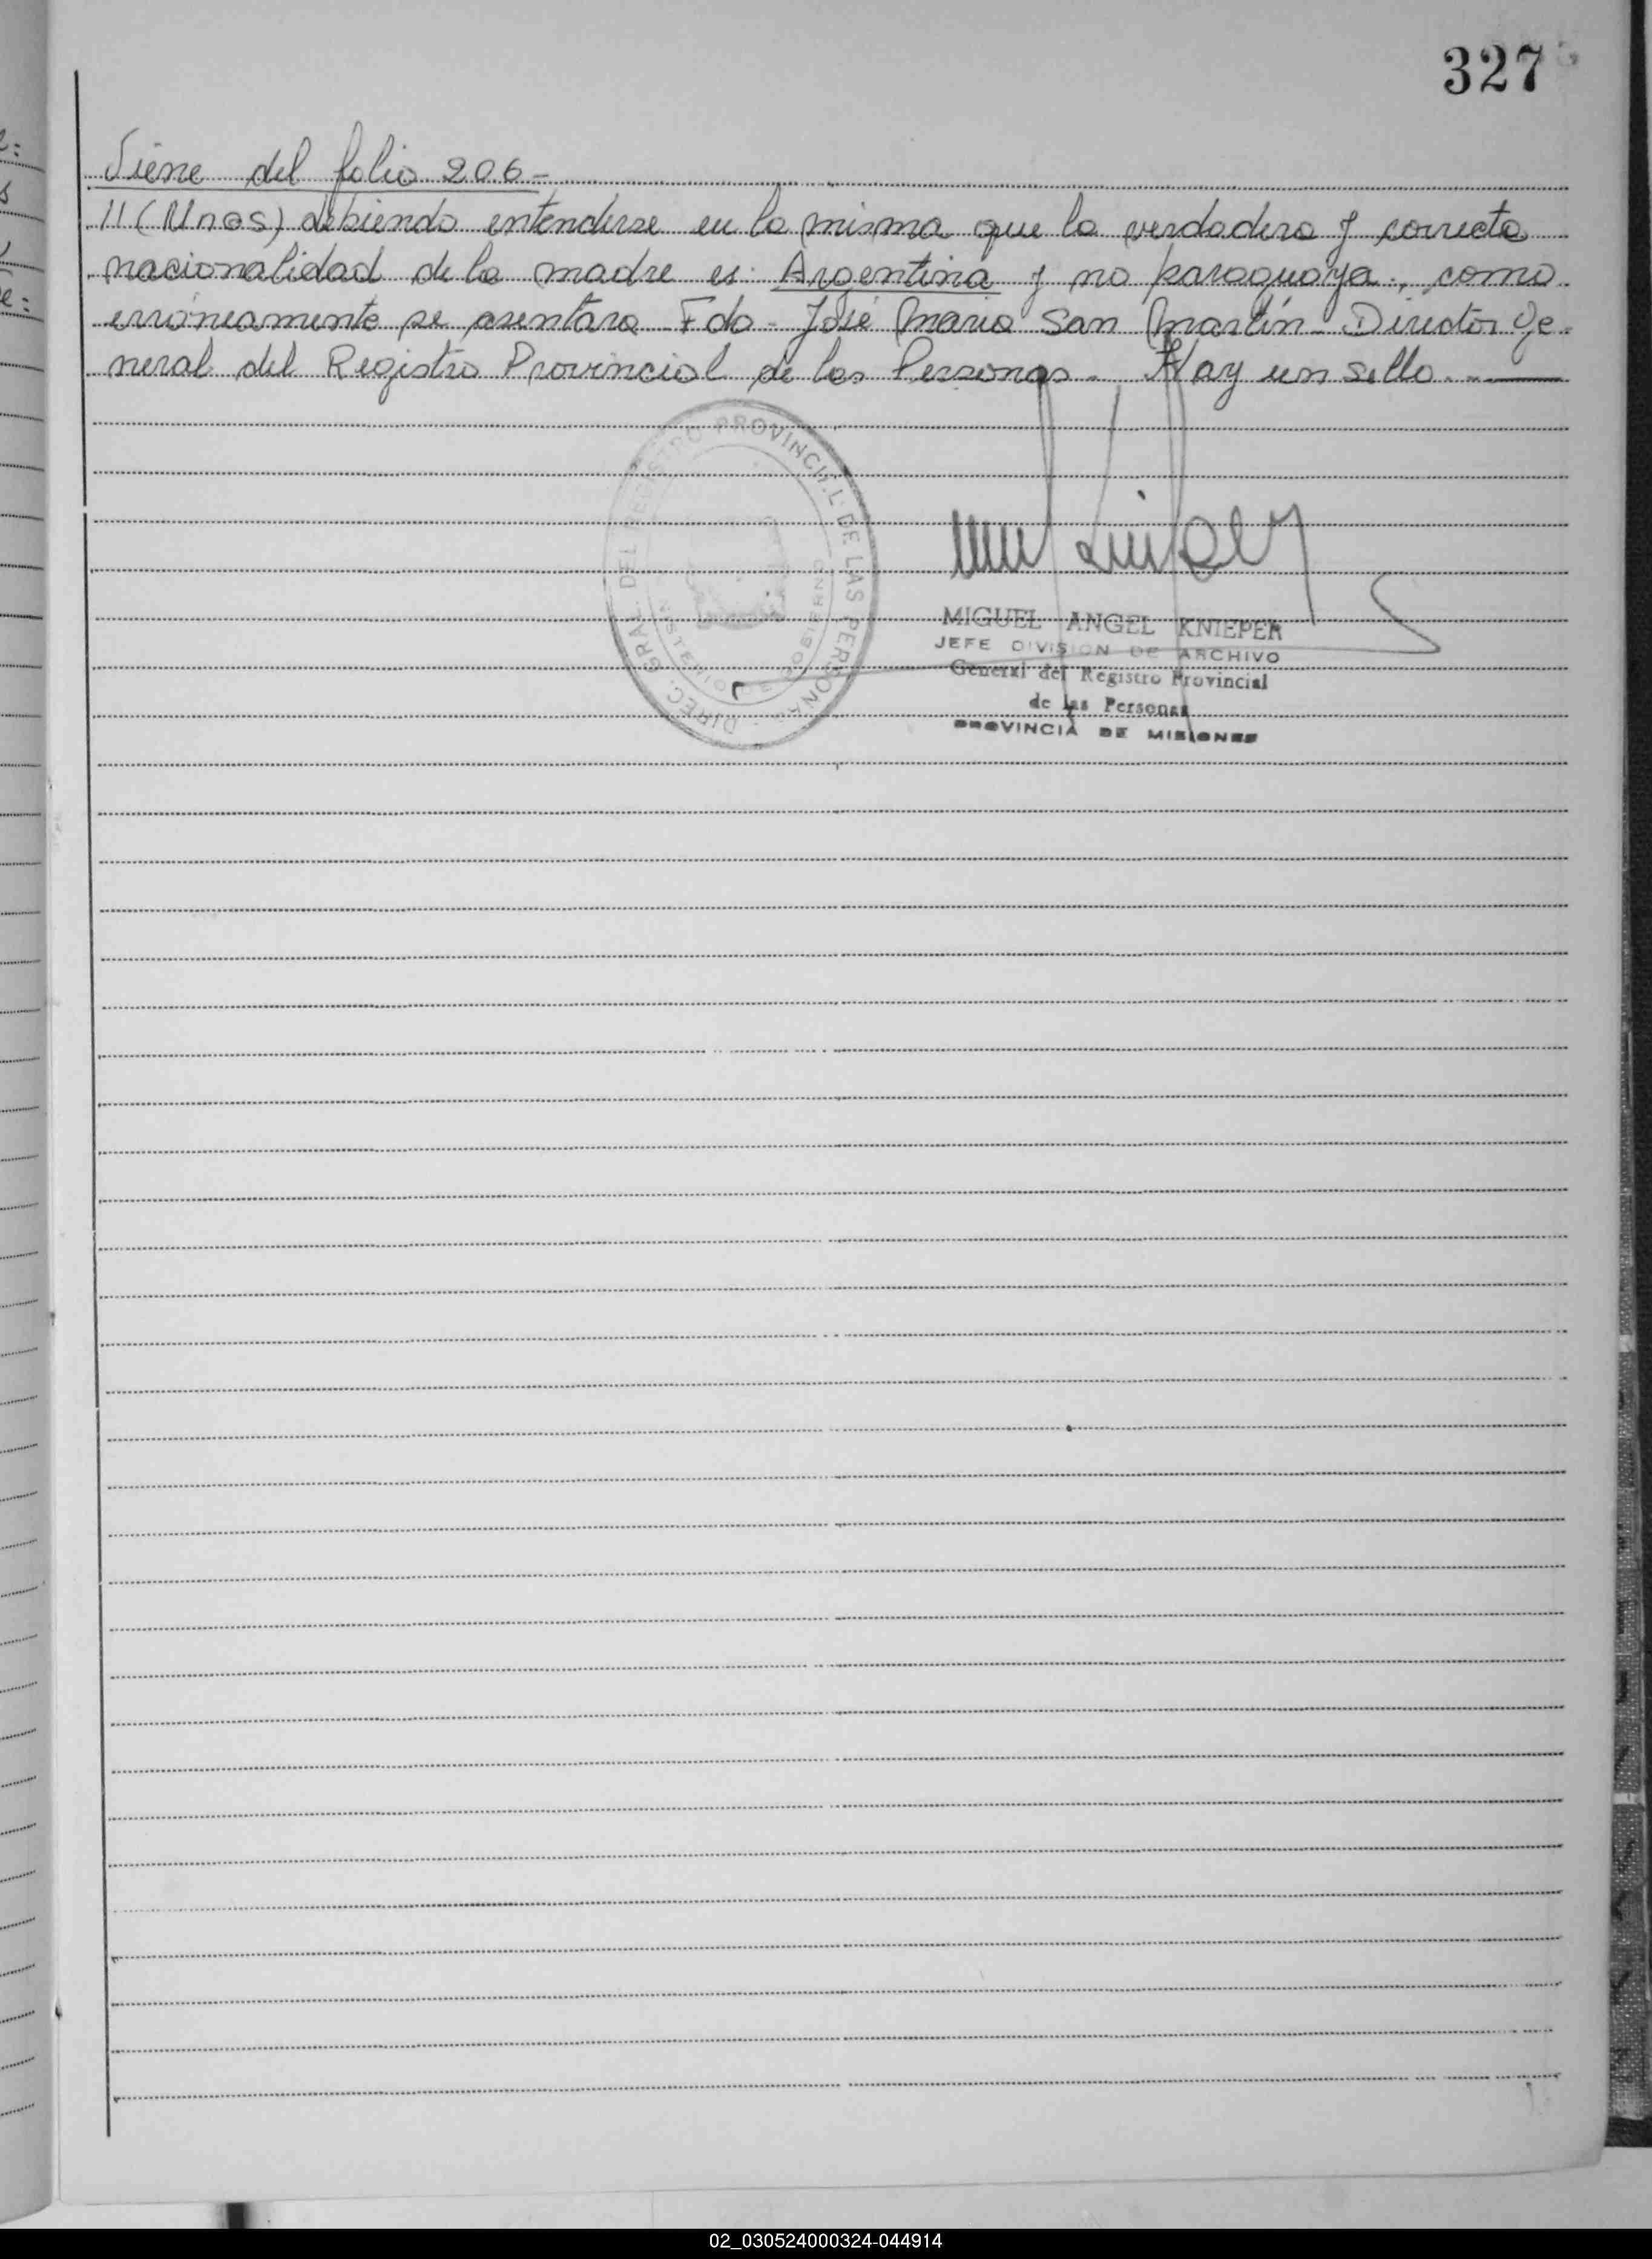 327
Viene del folio 206-
11 (Unos) debiendo entenderse en la misma que la verdadera y correcta
nacionalidad de la madre es: Argentina y no paraguaya, como
erróneamente se asentara - Fdo - José Maria San Martín - Director Ge-
neral del Registro Provincial de las Personas - Hay un sello. -
DIREC. GRAL. DEL REGISTRO PROVINCIAL DE LAS PERSONAS
MINISTERIO DE GOBIERNO
MIGUEL ANGEL KNIEPER
JEFE DIVISION DE ARCHIVO
General del Registro Provincial
de las Personas
PROVINCIA DE MISIONES
02_030524000324-044914